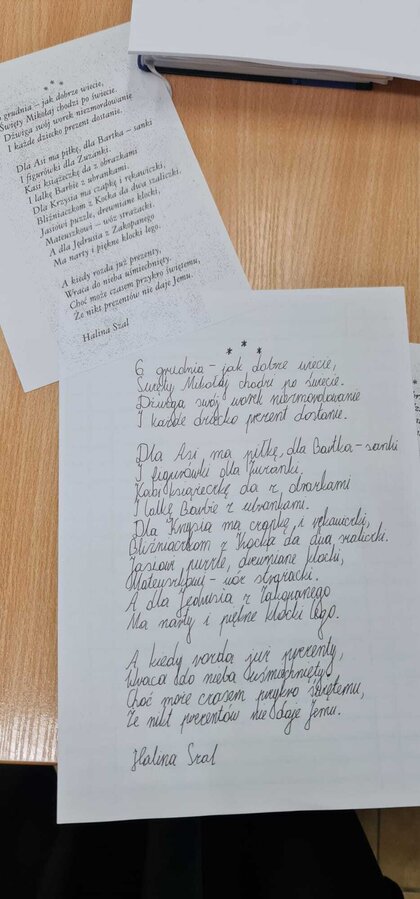 * * *
grudnia – jak dobrze wiecie,
Święty Mikołaj chodzi po świecie.
Dźwiga swój worek niezmordowanie
I każde dziecko prezent dostanie.
Dla Asi ma piłkę, dla Bartka – sanki
I figurówki dla Zuzanki.
Kasi książeczkę da z obrazkami
I lalkę Barbie z ubrankami.
Dla Krzysia ma czapkę i rękawiczki,
Bliźniaczkom z Kocka da dwa szaliczki.
Jasiowi puzzle, drewniane klocki,
Mateuszkowi – wóz strażacki.
A dla Jędrusia z Zakopanego
Ma narty i piękne klocki lego.
A kiedy rozda już prezenty,
Wraca do nieba uśmiechnięty.
Choć może czasem przykro świętemu,
Że nikt prezentów nie daje Jemu.
Halina Szal
* * *
6 grudnia – jak dobrze wiecie,
Święty Mikołaj chodzi po świecie.
Dźwiga swój worek niezmordowanie
I każde dziecko prezent dostanie.
Dla Asi ma piłkę, dla Bartka – sanki
I figurówki dla Zuzanki.
Kasi książeczkę da z obrazkami
I lalkę Barbie z ubrankami.
Dla Krzysia ma czapkę i rękawiczki,
Bliźniaczkom z Kocka da dwa szaliczki.
Jasiowi puzzle, drewniane klocki,
Mateuszkowi – wóz strażacki.
A dla Jędrusia z Zakopanego
Ma narty i piękne klocki lego.
A kiedy rozda już prezenty,
Wraca do nieba uśmiechnięty.
Choć może czasem przykro świętemu,
Że nikt prezentów nie daje Jemu.
Halina Szal